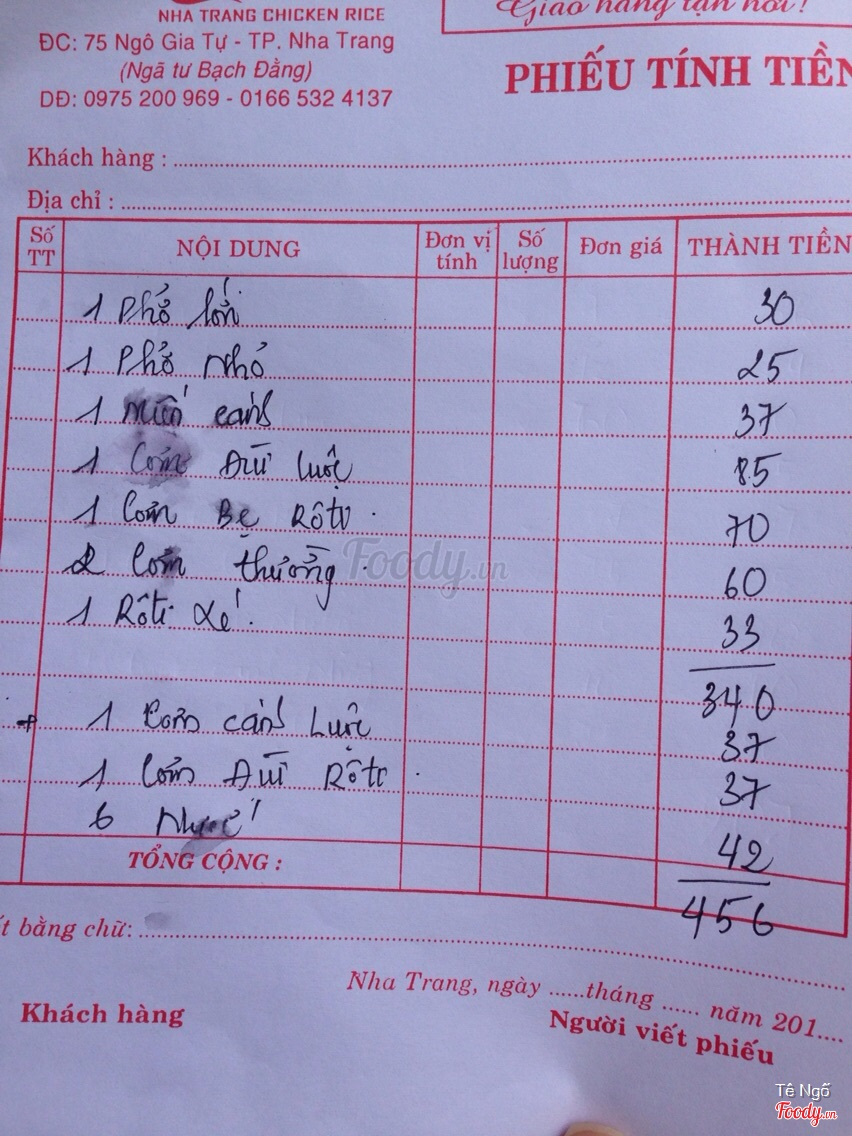 NHA TRANG CHICKEN RICE
Giao hàng tận nơi!
ĐC: 75 Ngô Gia Tự - TP. Nha Trang
(Ngã tư Bạch Đằng)
DĐ: 0975 200 969 - 0166 532 4137
PHIẾU TÍNH TIỀN
Khách hàng :
Địa chỉ :
Số TT NỘI DUNG Đơn vị tính Số lượng Đơn giá THÀNH TIỀN
1 Phở lớn 30
1 Phở nhỏ 25
1 Miến cánh 37
1 Cơm Đùi luộc 85
1 Cơm Bẹ Rôti 70
2 Cơm thường 60
1 Rôti xé 33
340
+ 1 Cơm cánh Luộc 37
1 Cơm Đùi Rôti 37
6 Nước 42
TỔNG CỘNG : 456
ết bằng chữ:
Nha Trang, ngày ......tháng ...... năm 201....
Khách hàng
Người viết phiếu
Foody.vn
Tê Ngố
Foody.vn